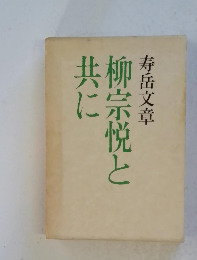 寿岳文章
柳宗悦と
共に